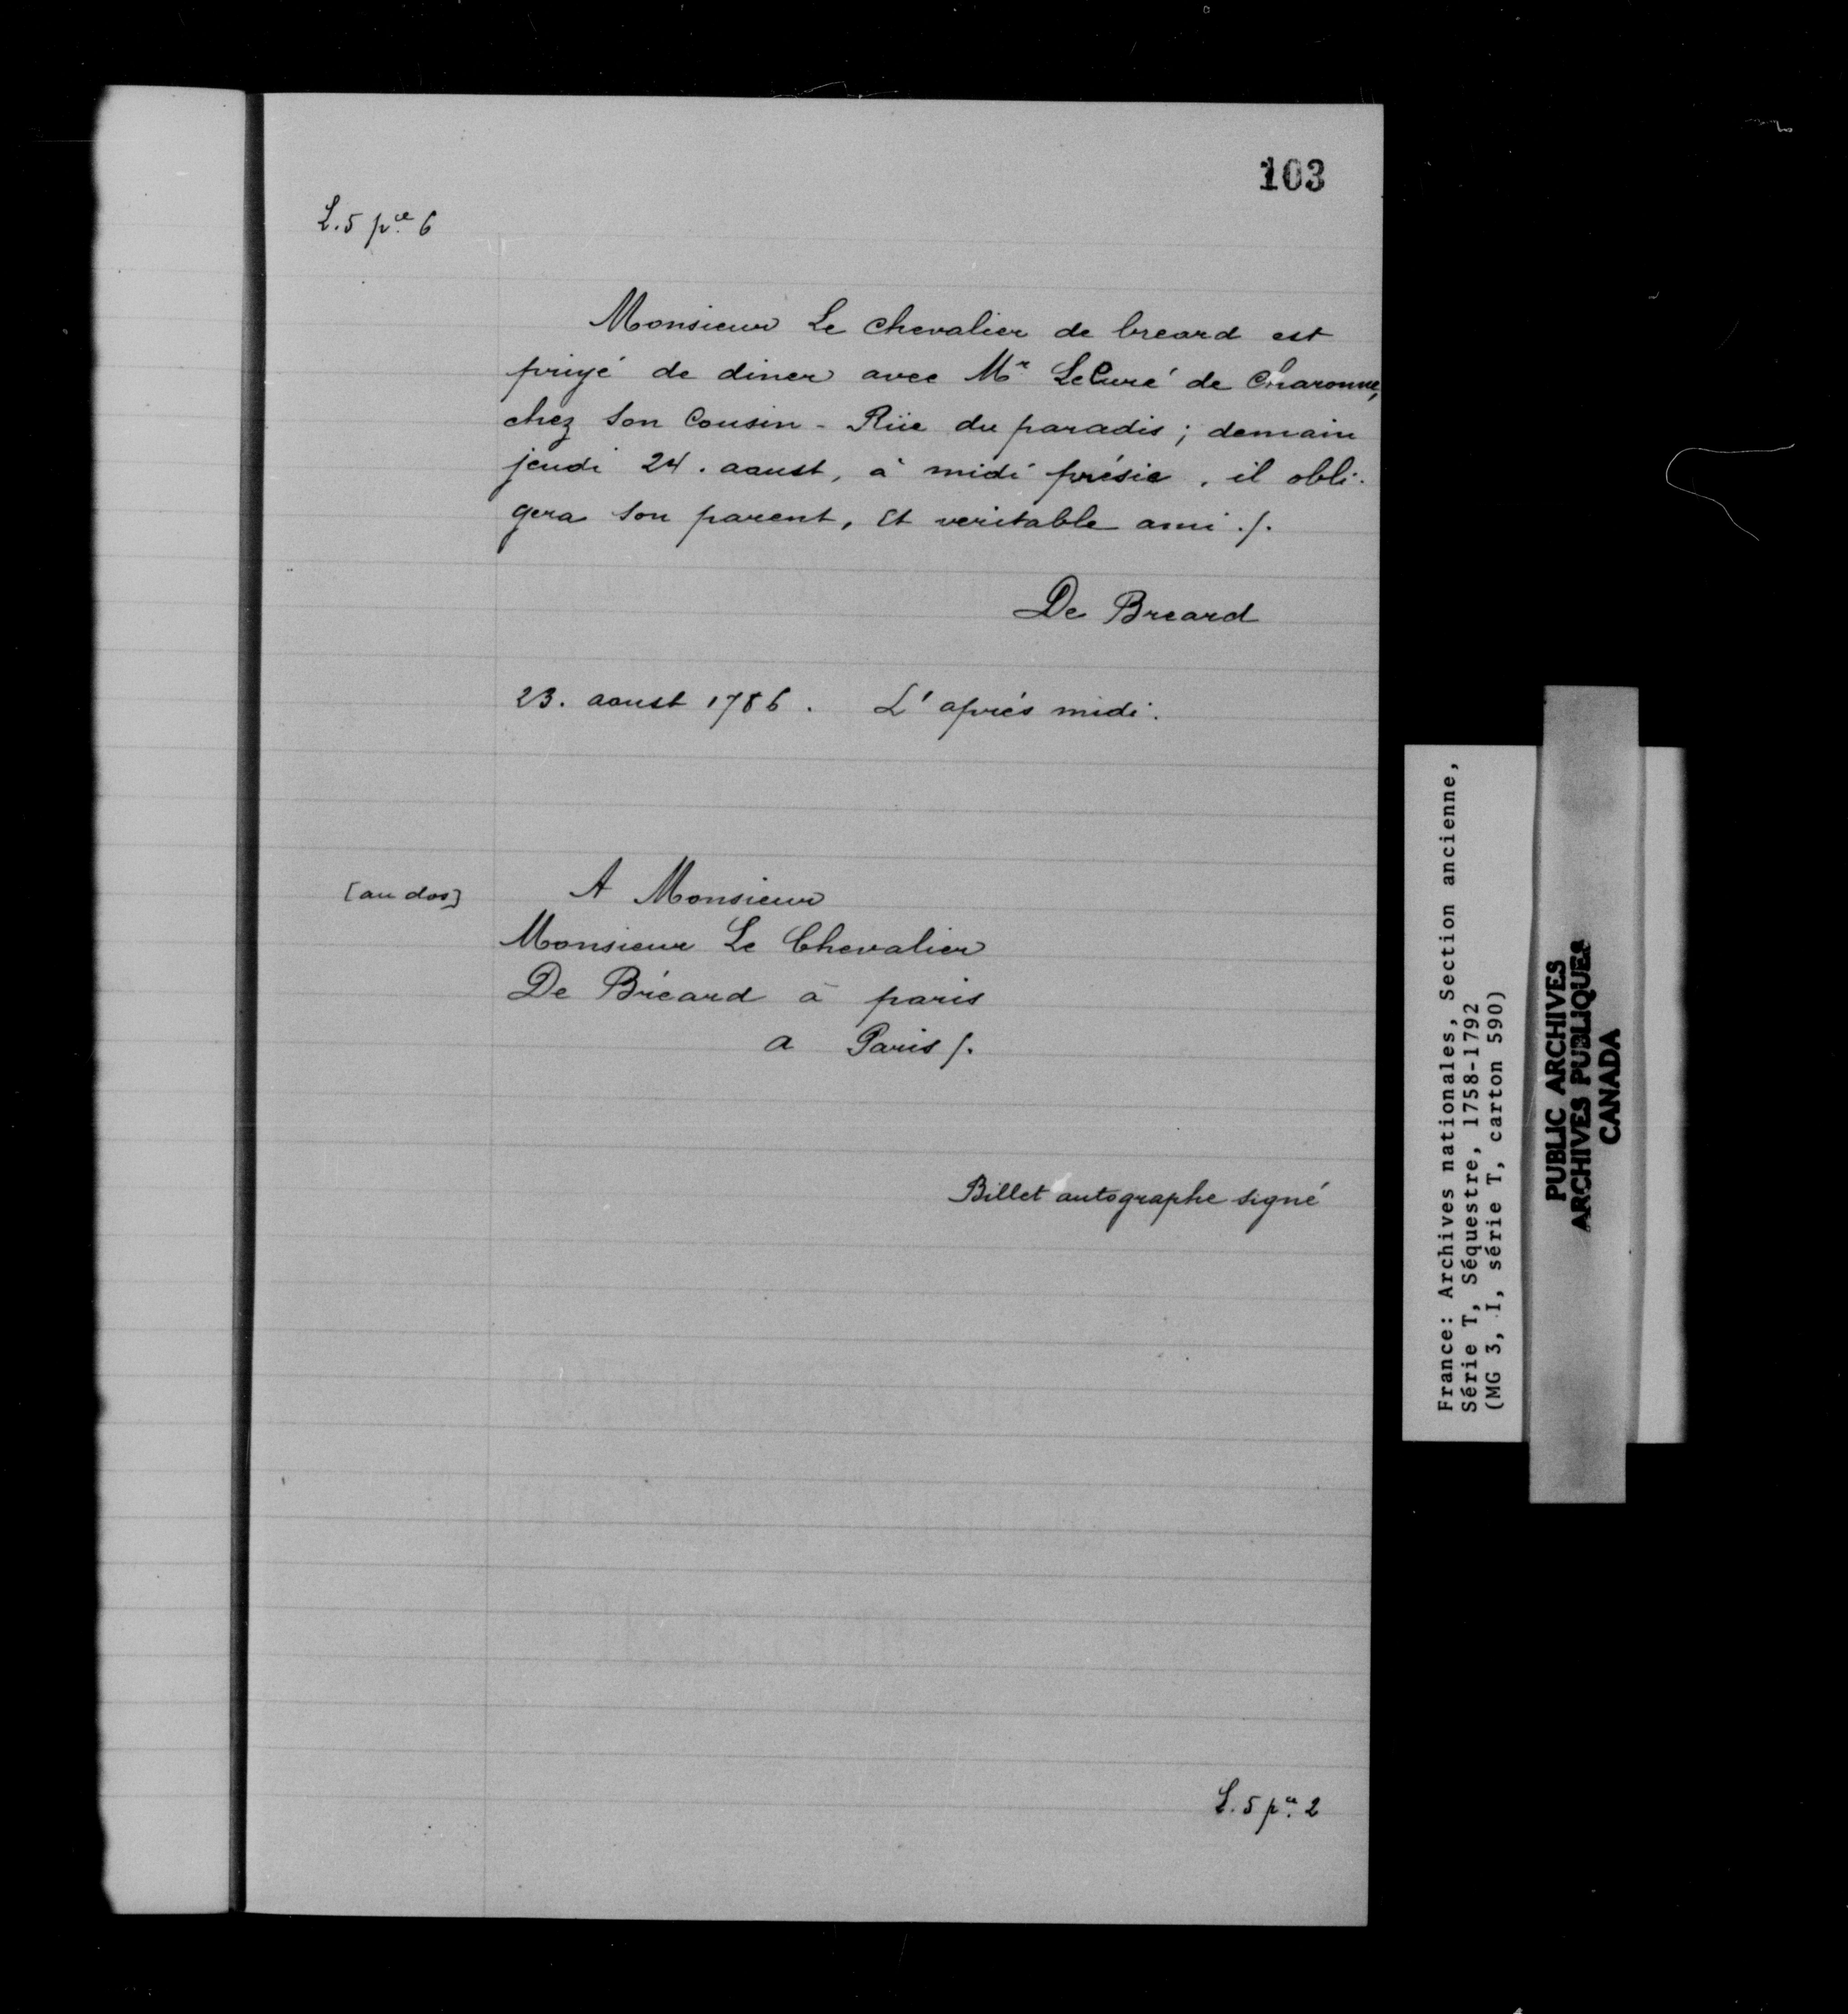 103
L. 5 pce 6
Monsieur Le chevalier de breard est
priyé de diner avec Mr LeCuré de Charonne,
chez son Cousin - Rüe du paradis ; demain
jeudi 24. aoust, à midi présie, il obli-
gera son parent, Et veritable ami ./.
De Breard
23. aoust 1786. L'aprés midi.
[au dos]
A Monsieur
Monsieur Le Chevalier
De Bréard à paris
a Paris /.
Billet autographe signé
L. 5 pce 2
France: Archives nationales, Section ancienne,
Série T, Séquestre, 1758-1792
(MG 3, I, série T, carton 590)
PUBLIC ARCHIVES
ARCHIVES PUBLIQUES
CANADA